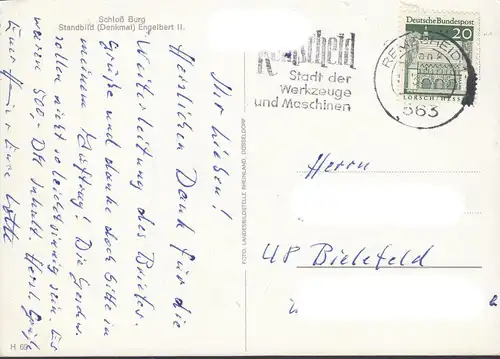 Schloß Burg
Standbild (Denkmal) Engelbert II.
Ihr Lieben!
Herzlichen Dank für die
Weiterleitung des Briefes.
Grüße und danke doch bitte in
meinem Auftrag! Die
sollen nicht so leichtsinnig sein. Es
waren 500,- DM Inhalt. Herzl. Grüße
Eure Lotte
H 69
FOTO: LANDESBILDSTELLE RHEINLAND, DÜSSELDORF
Remscheid
Stadt der
Werkzeuge
und Maschinen
REMSCHEID
563
Deutsche Bundespost
20
LORSCH/HESS
Herrn
48 Bielefeld